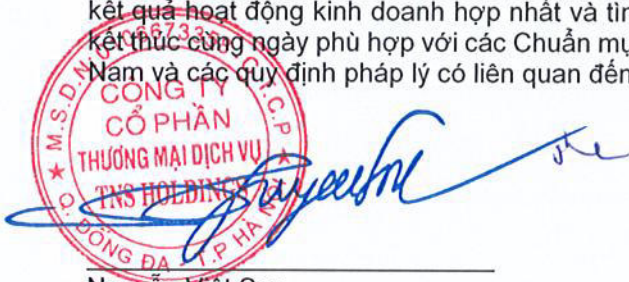 kết quả hoạt động kinh doanh hợp nhất và
kết thúc cùng ngày phù hợp với các Chuẩn
Nam và các quy định pháp lý có liên quan đến
CÔNG TY
CỔ PHẦN
THƯƠNG MẠI DỊCH VỤ
TNS HOLDINGS
★ M.S.D.N: C.T.C.P ★
Q. ĐỐNG ĐA - T.P HÀ